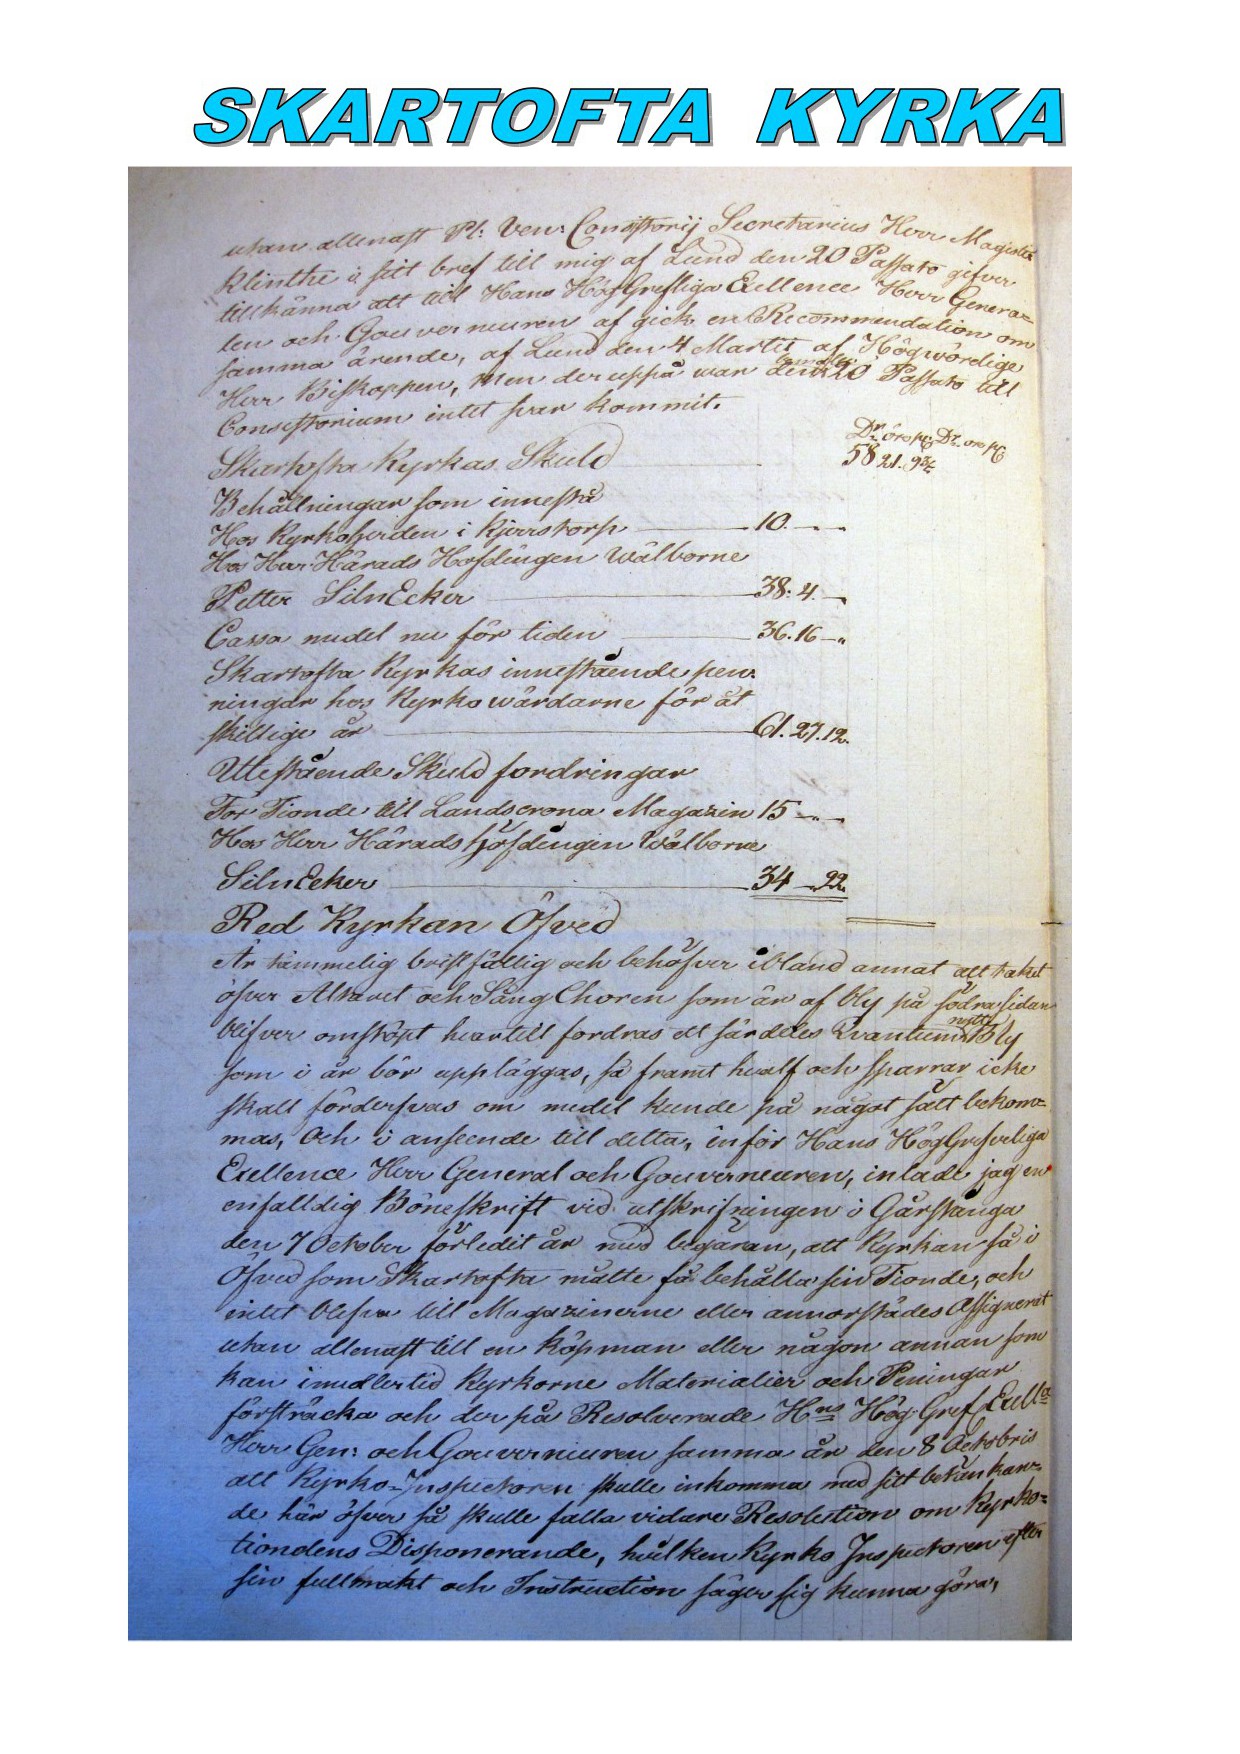 SKARTOFTA KYRKA
utan allenast Pl: Ven: Consistorij Secretarius Herr Magister
Klinthe i sitt bref till mig af Lund den 20 Passato gifver
tillkänna att till Hans HögGrefliga Exellence Herr Genera=
len och Gouverneuren af gick en Recommendation om
samma ärende, af Lund den 4 Martii af Högwördige
Herr Biskoppen, Men deruppå war den 20 Passato till
Consistorium intet svar kommit.
Dr öre pg Dr. öre pg
Skartofta Kyrkas Skuld 58 21. 9
Behållningar som innestå
Hos Kyrkoherden i Kjerrstorp 10. — „
Hos Herr Härads Höfdingen Wälborne
Petter SilnEcker 38. 4. — „
Cassa medel nu för tiden 36. 16 — „
Skartofta Kyrkas innestående pen=
ningar hos Kyrkowärdarne för åt
skillige år 61. 27. 12.
Utestående Skuld fordringar
För Tionde till Landscrona Magazin 15 — „ — „
Hos Herr Härads Höfdingen Wälborne
SilnEcker 34 — 22.
Red Kyrkan Öfved
Är temmelig bristfällig och behöfver ibland annat att taket
öfver Altaret och Sång Choren som är af bly på södra sidan
nytt
blifver omstöpt hwartill fordras ett särdeles Qvantum Bly
som i år bör uppläggas, så framt hwalf och sparrar icke
skall förderfvas om medel kunde på något sätt bekom=
mas, Och i anseende till detta, inför Hans HögGrefveliga
Exellence Herr General och Gouverneuren, inlade jag en
enfalldig Böneskrift vid utskrifningen i Gårstånga
den 7 October förledit år med begäran, att Kyrkan så i
Öfved som Skartofta måtte få behålla sin Tionde, och
intet blifva till Magazinerne eller annorstädes Assignerat
utan allenast till en Köpman eller någon annan som
kan imedlertid Kyrkorne Materialier och Peningar
försträcka och der på Resolverade Hns Hög Gref Exll=
Herr Gen: och Gouverneuren samma år den 8 Octobris
att Kyrko=Inspectoren skulle inkomma med sitt betänkan=
de här öfver så skulle falla vidare Resolution om Kyrko=
tiondens Disponerande, hvilken Kyrko Inspectoren efter
sin fullmakt och Instruction säger sig kunna göra,